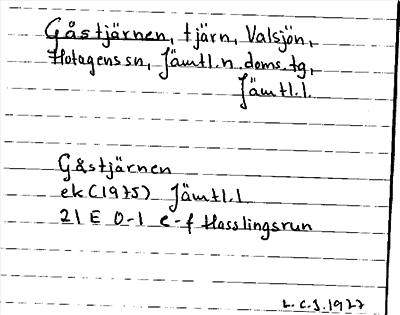 Gåstjärnen, tjärn, Valsjön,
Hotagens sn, Jämtl. n. doms. tg,
Jämtl. l.
Gåstjärnen
ek (1975) Jämtl. l
21 E 0-1 e-f Hasslingsrun
L. C. J. 1977